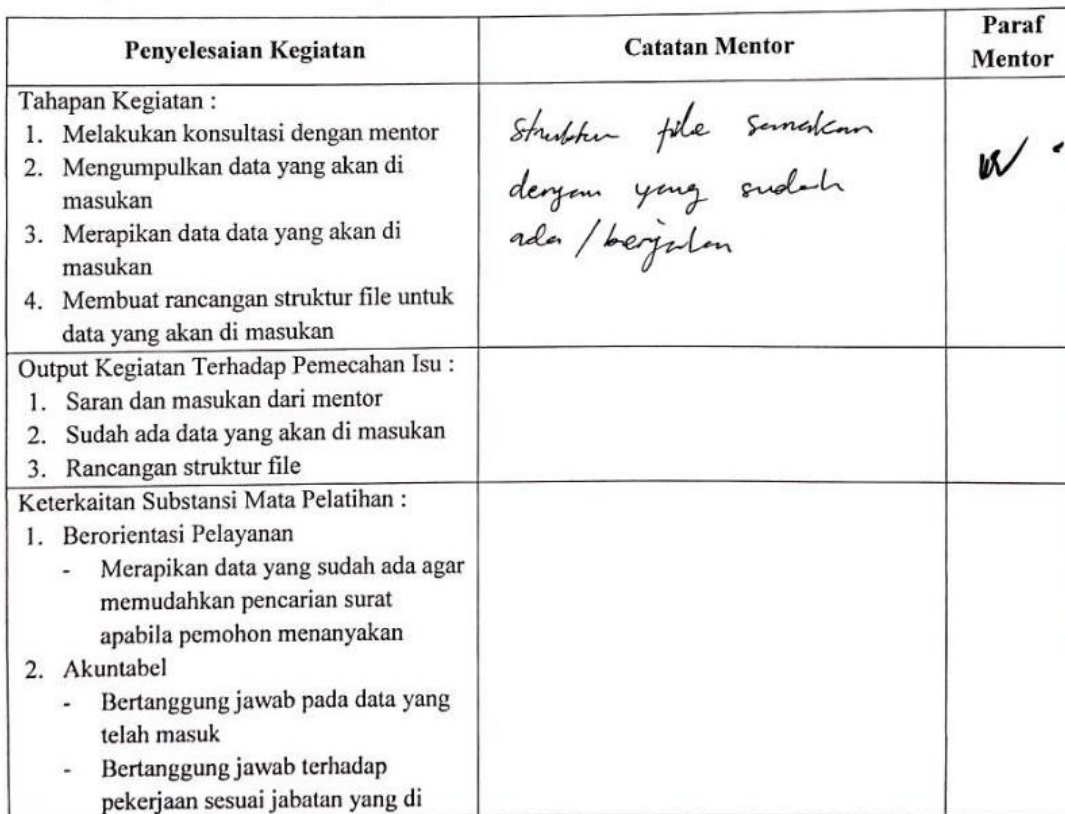 Penyelesaian Kegiatan
Catatan Mentor
Paraf
Mentor
Tahapan Kegiatan :
1. Melakukan konsultasi dengan mentor
2. Mengumpulkan data yang akan di
masukan
3. Merapikan data data yang akan di
masukan
4. Membuat rancangan struktur file untuk
data yang akan di masukan
Struktur file samakan
dengan yang sudah
ada / berjalan
Output Kegiatan Terhadap Pemecahan Isu :
1. Saran dan masukan dari mentor
2. Sudah ada data yang akan di masukan
3. Rancangan struktur file
Keterkaitan Substansi Mata Pelatihan :
1. Berorientasi Pelayanan
- Merapikan data yang sudah ada agar
memudahkan pencarian surat
apabila pemohon menanyakan
2. Akuntabel
- Bertanggung jawab pada data yang
telah masuk
- Bertanggung jawab terhadap
pekerjaan sesuai jabatan yang di